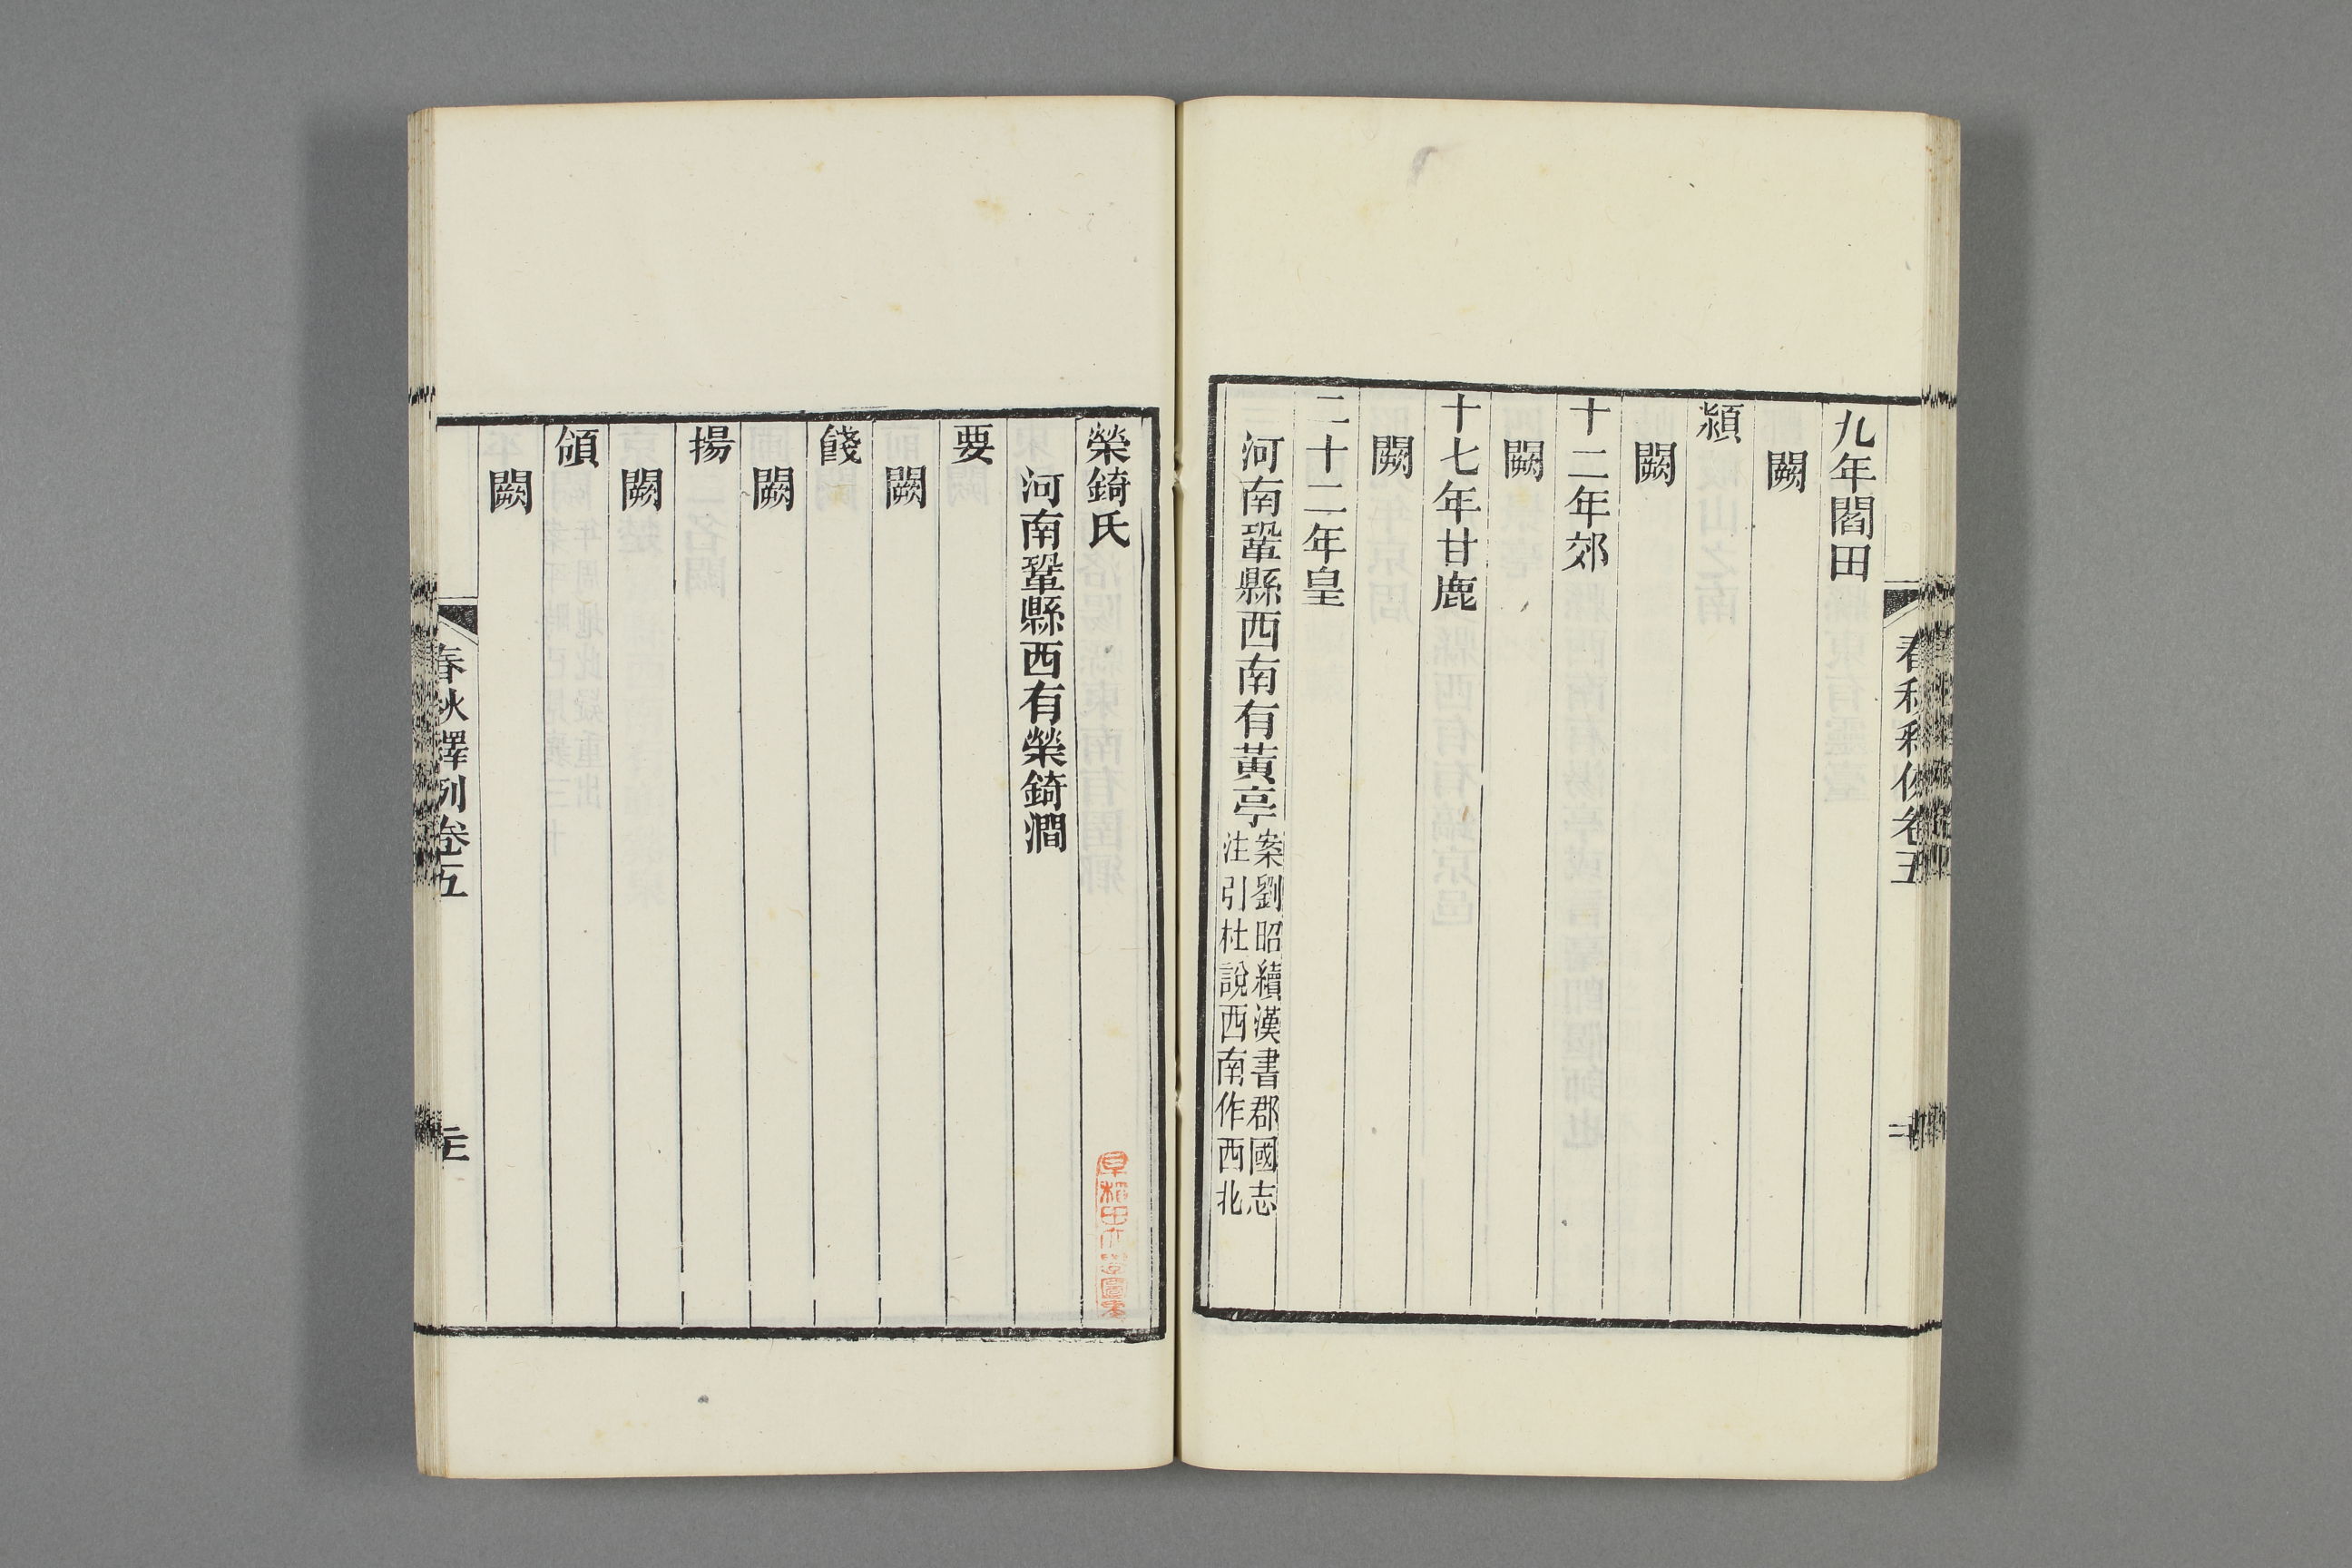 九年閻田
闕
潁
闕
十二年郊
闕
十七年甘鹿
闕
二十二年皇
河南鞏縣西南有黃亭案劉昭續漢書郡國志
注引杜說西南作西北
榮錡氏
河南鞏縣西有榮錡澗
要
闕
餞
闕
揚
闕
頜
闕
春秋釋例卷五
早稻田大學圖書